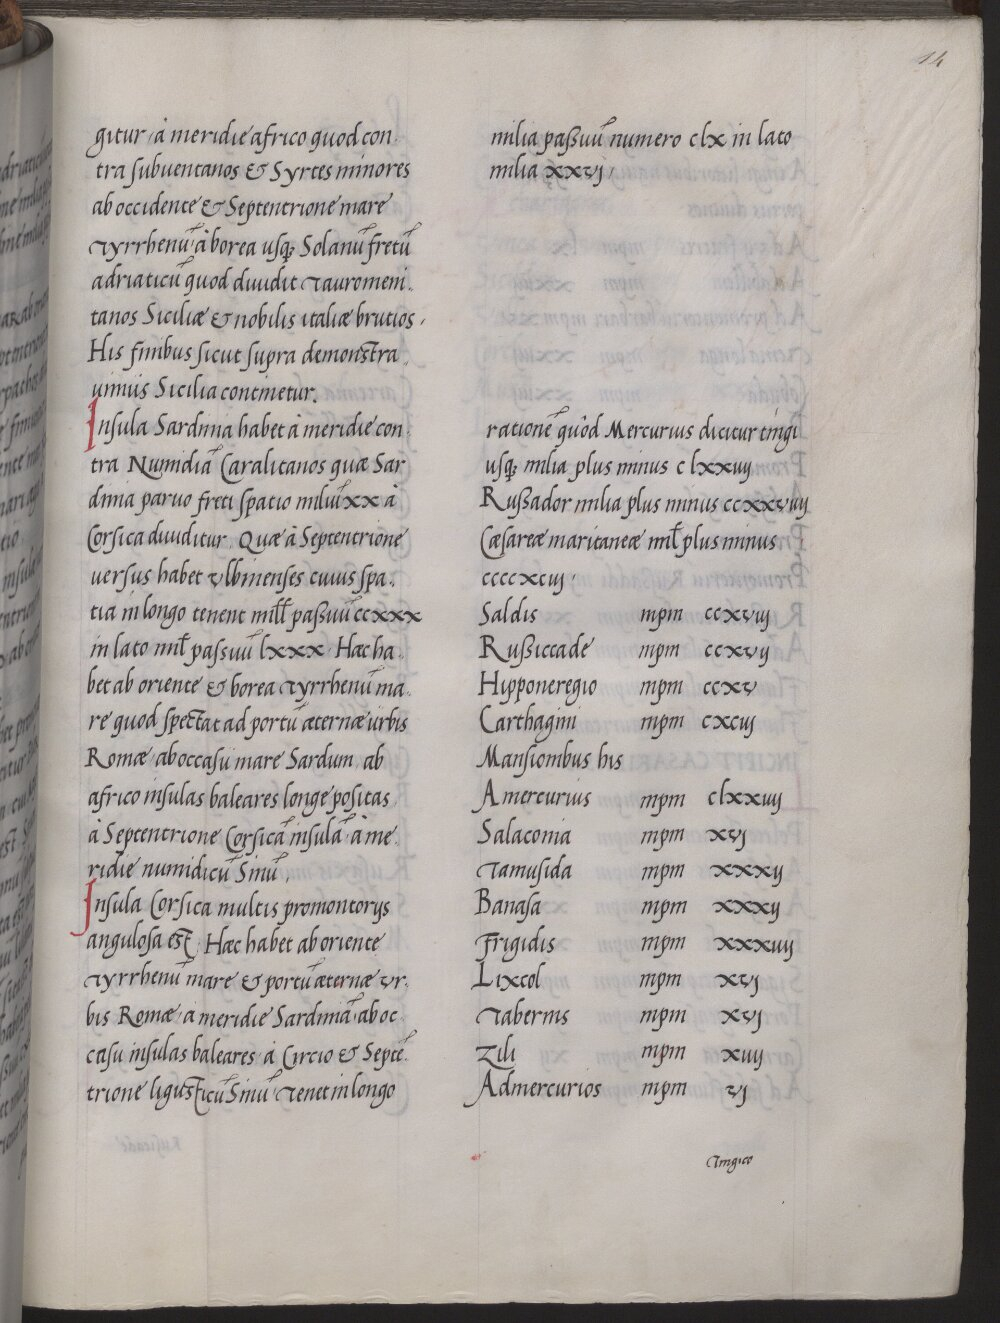 14
gitur à meridie africo quod con
tra subuentanos & Syrtes minores
ab occidente & Septentrione mare
Tyrrhenū à borea usq; Solanū fretū
adriaticū quod diuidit Tauromeni.
tanos Siciliæ & nobilis italiæ brutios.
His finibus sicut supra demonstra
uimus Sicilia continetur.
Insula Sardinia habet à meridie con
tra Numidiā Caralitanos quæ Sar
dinia paruo freti spatio miliū xx à
Corsica diuiditur. Quæ à Septentrione
uersus habet vlbinenses cuius spa.
tia in longo tenent mill passuū ccxxx
in lato mil passuū lxxx. Hæc ha.
bet ab oriente & borea Tyrrhenū ma.
re quod spectat ad portū æternæ urbis
Romæ ab occasu mare Sardum, ab
africo insulas baleares longe positas
à Septentrione Corsicā insulā à me
ridie numidicū Sinū.
Insula Corsica multis promontorijs
angulosa est. Hæc habet ab oriente
Tyrrhenū mare & portū æternæ vr.
bis Romæ à meridie Sardiniā ab oc.
casu insulas baleares à Circio & Septē.
trione ligusticū Sinū Tenet in longo
milia passuū numero clx in lato
milia xxvj.
rationē quòd Mercurius dicitur tingi
usq; milia plus minus clxxiiij
Russador milia plus minus ccxxviiij
Cæsareæ maritaneæ mil plus minus
ccccxciij.
Saldis mpm ccxviij
Russiccade mpm ccxvij
Hipponeregio mpm ccxv
Carthagini mpm cxciij
Mansionibus his
A mercurius mpm clxxiiij
Salaconia mpm xvj
Tamusida mpm xxxij
Banasa mpm xxxij
Frigidis mpm xxxiiij
Lixcol mpm xvj
Tabernis mpm xvj
Zili mpm xiiij
Admercurios mpm vj
Tingico